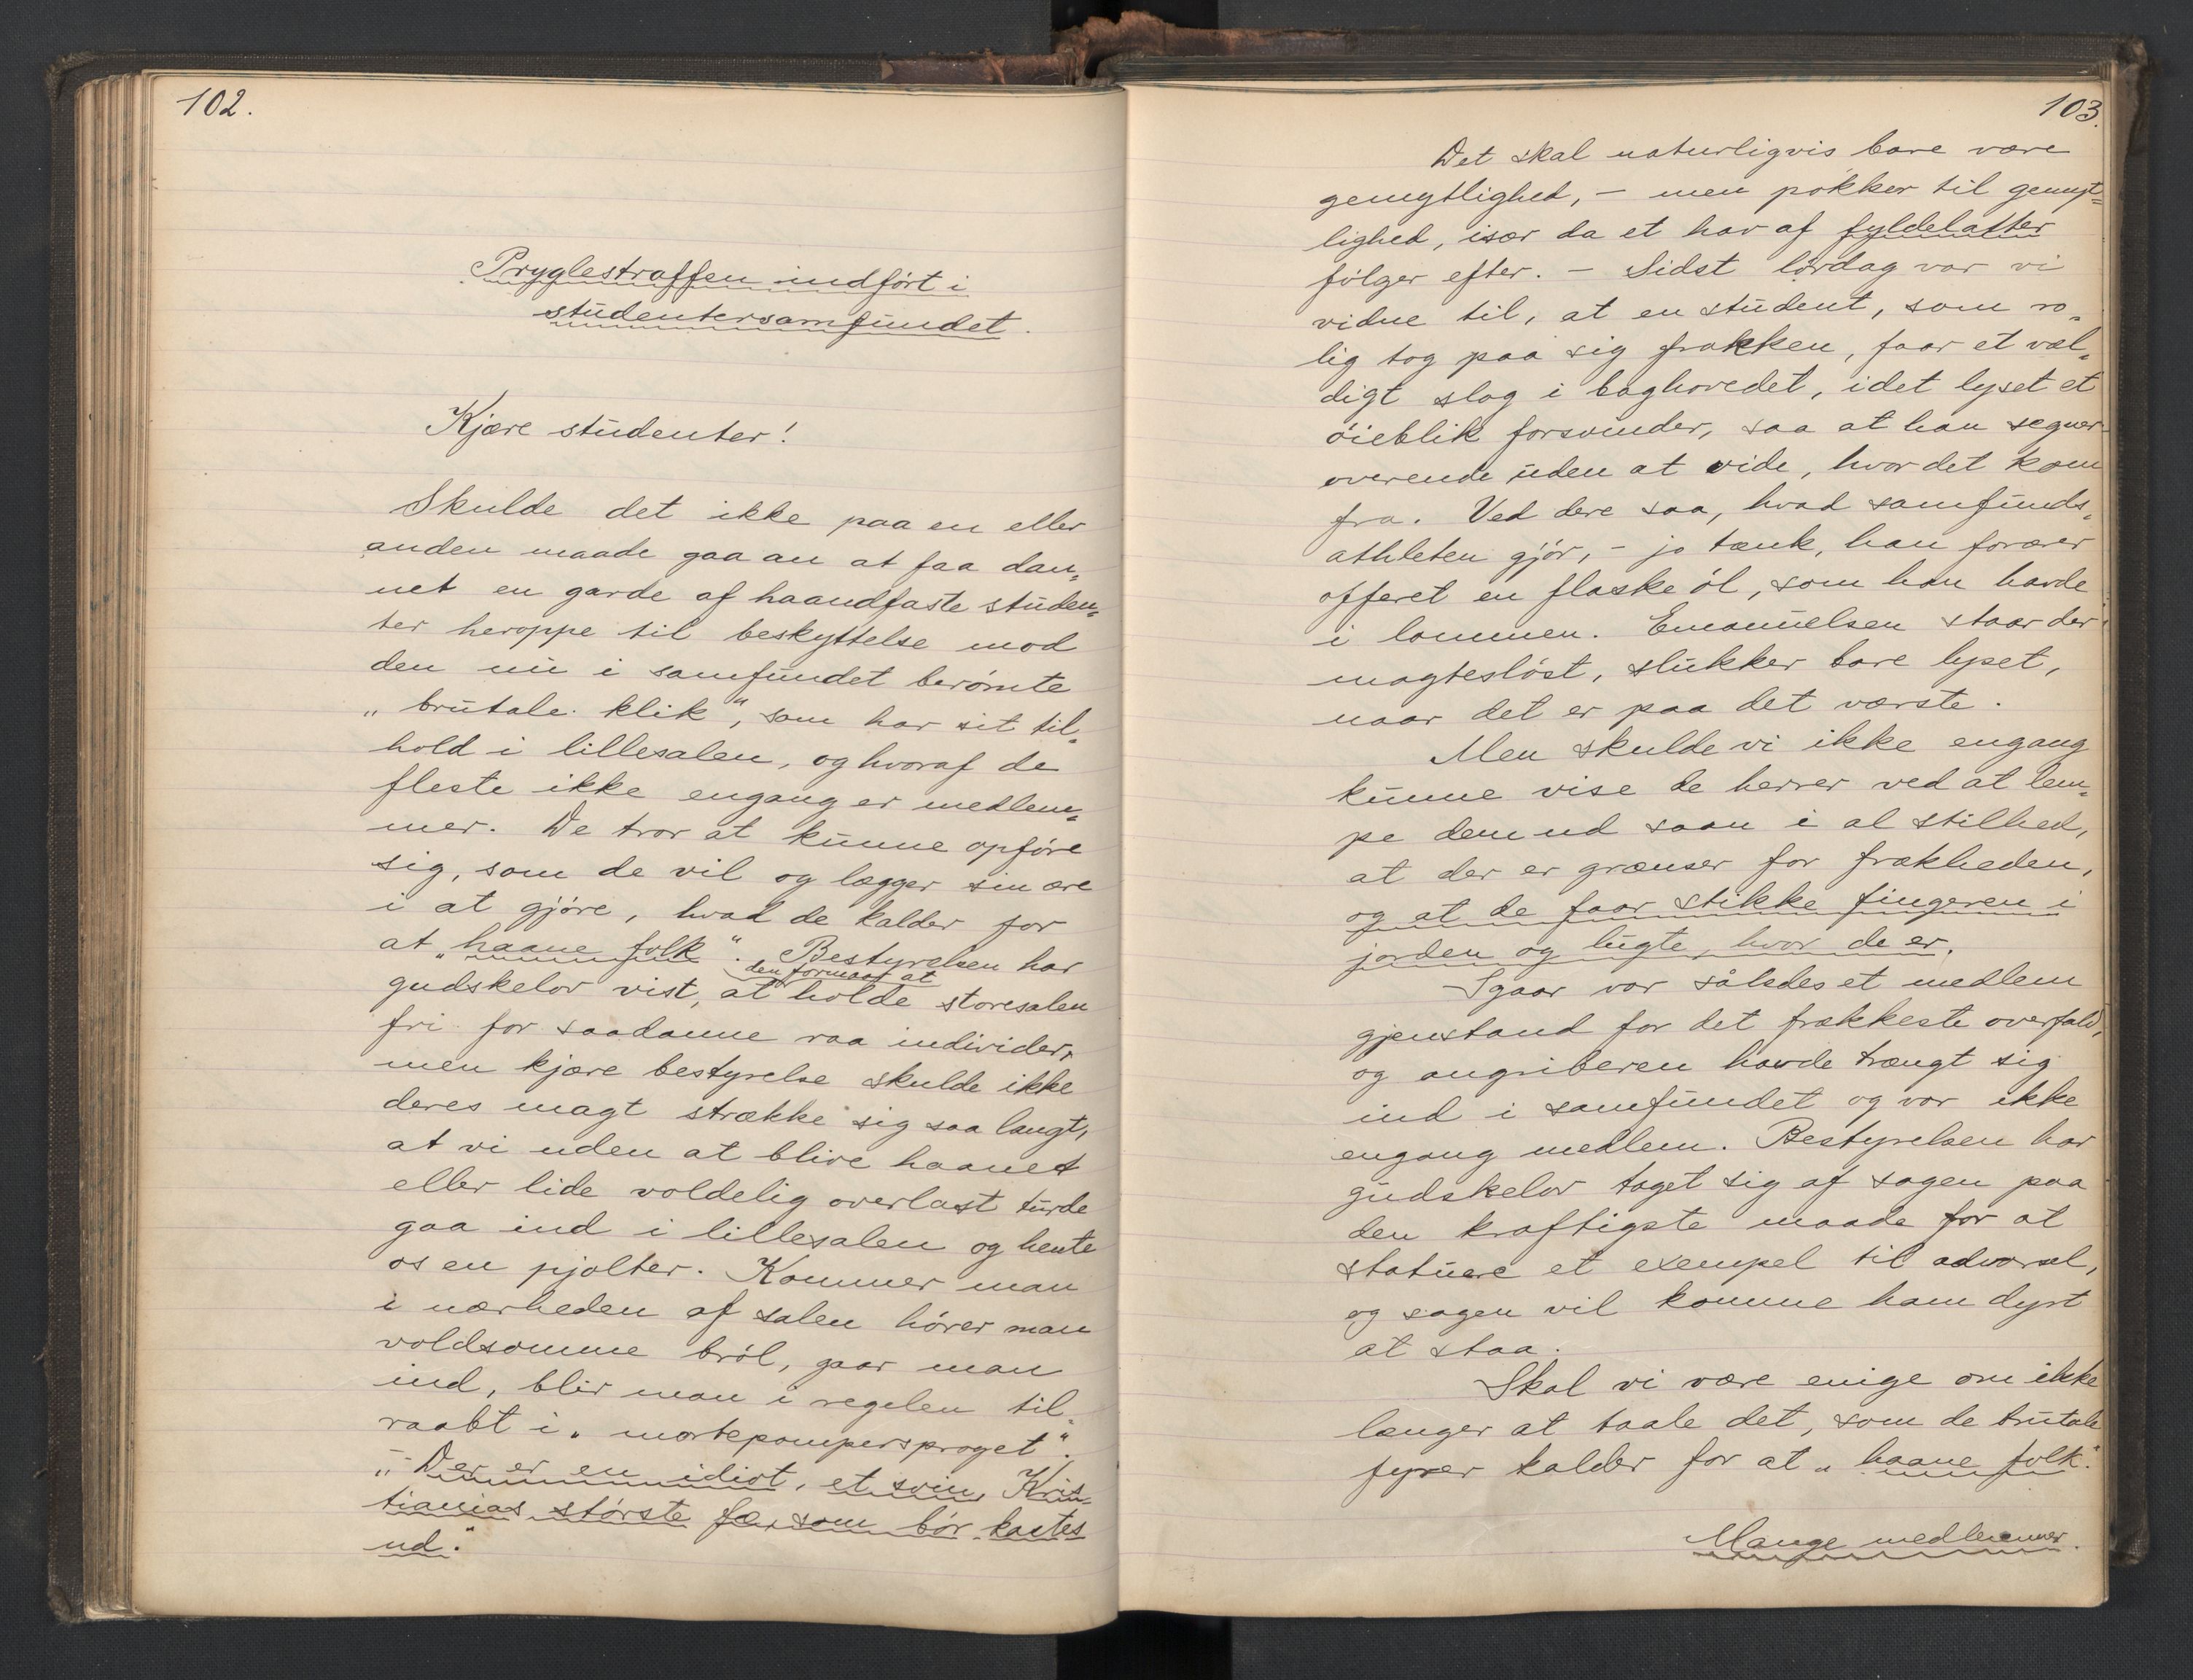 102.
Pryglestraffen indført i
studentersamfundet.
Kjære studenter!
Skulde det ikke paa en eller
anden maade gaa an at faa dan„
net en garde af haandfaste studen„
ter heroppe til beskyttelse mod
den nu i samfundet berømte
„brutale klik“, som har sit til„
hold i lillesalen, og hvoraf de
fleste ikke engang er medlem„
mer. De tror at kunne opføre
sig, som de vil og lægger sin ære
i at gjøre, hvad de kalder for
at „haane folk“. Bestyrelsen har
den formaar at
gudskelov vist, at holde storesalen
fri for saadanne raa individer,
men kjære bestyrelse skulde ikke
deres magt strække sig saa langt,
at vi uden at blive haanet
eller lide voldelig overlast turde
gaa ind i lillesalen og hente
os en pjolter. Kommer man
i nærheden af salen hører man
voldsomme brøl, gaar man
ind, blir man i regelen til„
raabt i „mortepumpersproget“.
„– Der er en idiot, et svin, Kris„
tianias største fæ, som bør kastes
ud.“
103.
Det skal naturligvis bare være
gemytlighed, – men pokker til gemyt„
lighed, især da et hav af fyldelatter
følger efter. – Sidst lørdag var vi
vidne til, at en student, som ro„
lig tog paa sig frakken, faar et væl„
digt slag i baghovedet, idet lyset et
øieblik forsvinder, saa at han segner
overende uden at vide, hvor det kom
fra. Ved dere saa, hvad samfunds„
athleten gjør, – jo tænk, han forærer
offeret en flaske øl, som han havde
i lommen. Emanuelsen staar der
magtesløst, slukker bare lyset,
naar det er paa det værste.
Men skulde vi ikke engang
kunne vise de herrer ved at lem„
pe dem ud saan i al stilhed,
at der er grænser for frækheden,
og at de faar stikke fingeren i
jorden og lugte, hvor de er.
Igaar var således et medlem
gjenstand for det frækkeste overfald,
og angriberen havde trængt sig
ind i samfundet og var ikke
engang medlem. Bestyrelsen har
gudskelov taget sig af sagen paa
den kraftigste maade for at
statuere et exempel til advarsel,
og sagen vil komme ham dyrt
at staa.
Skal vi være enige om ikke
længer at taale det, som de brutale
fyrer kalder for at „haane folk“.
Mange medlemmer.